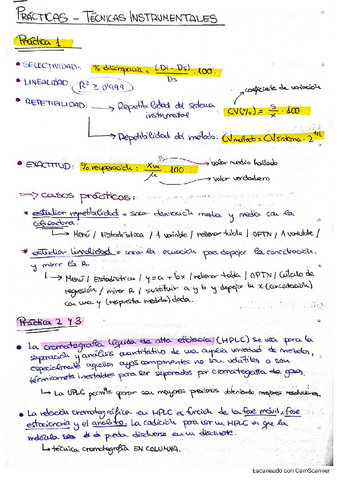 PRÁCTICAS - TÉCNICAS INSTRUMENTALES
Práctica 1
• SELECTIVIDAD: % discrepancia = (Di - Ds) / Ds · 100
• LINEALIDAD: R² ≥ 0'999
• REPETIBILIDAD: → Repetibilidad del sistema instrumental
CV(%) = s/x · 100 → coeficiente de variación
→ Repetibilidad del método:
• EXACTITUD: % recuperación: · 100 → valor medio hallado
→ valor verdadero
⇒ casos prácticos:
* estudiar repetibilidad = sacar desviación media y media con la calculadora
↳ Menú / Estadística / 1 variable / rellenar tabla / OPTN / 1 variable /
* estudiar linealidad = sacar la ecuación para despejar la concentración
y mirar la R.
↳ Menú / Estadística / y=a+bx / rellenar tabla / OPTN / Cálculo de
regresión / mirar R / sustituir a y b y despejar la x (concentración)
con una y (respuesta medida) dada.
Práctica 2 y 3
• La cromatografía líquida de alta eficacia (HPLC) se usa para la
separación y análisis cuantitativo de una amplia variedad de
especialmente aquellos cuyos componentes no son volátiles o son
térmicamente inestables para ser separados por cromatografía de gases.
↳ La HPLC permite operar con mayores presiones obteniendo mejores resoluciones.
• La relación cromatográfica en HPLC es función de la fase móvil, fase
estacionaria y el analito. La condición para usar HPLC es que la
molécula pueda disolverse en un disolvente.
↳ técnica cromatografía EN COLUMNA.
Escaneado con CamScanner